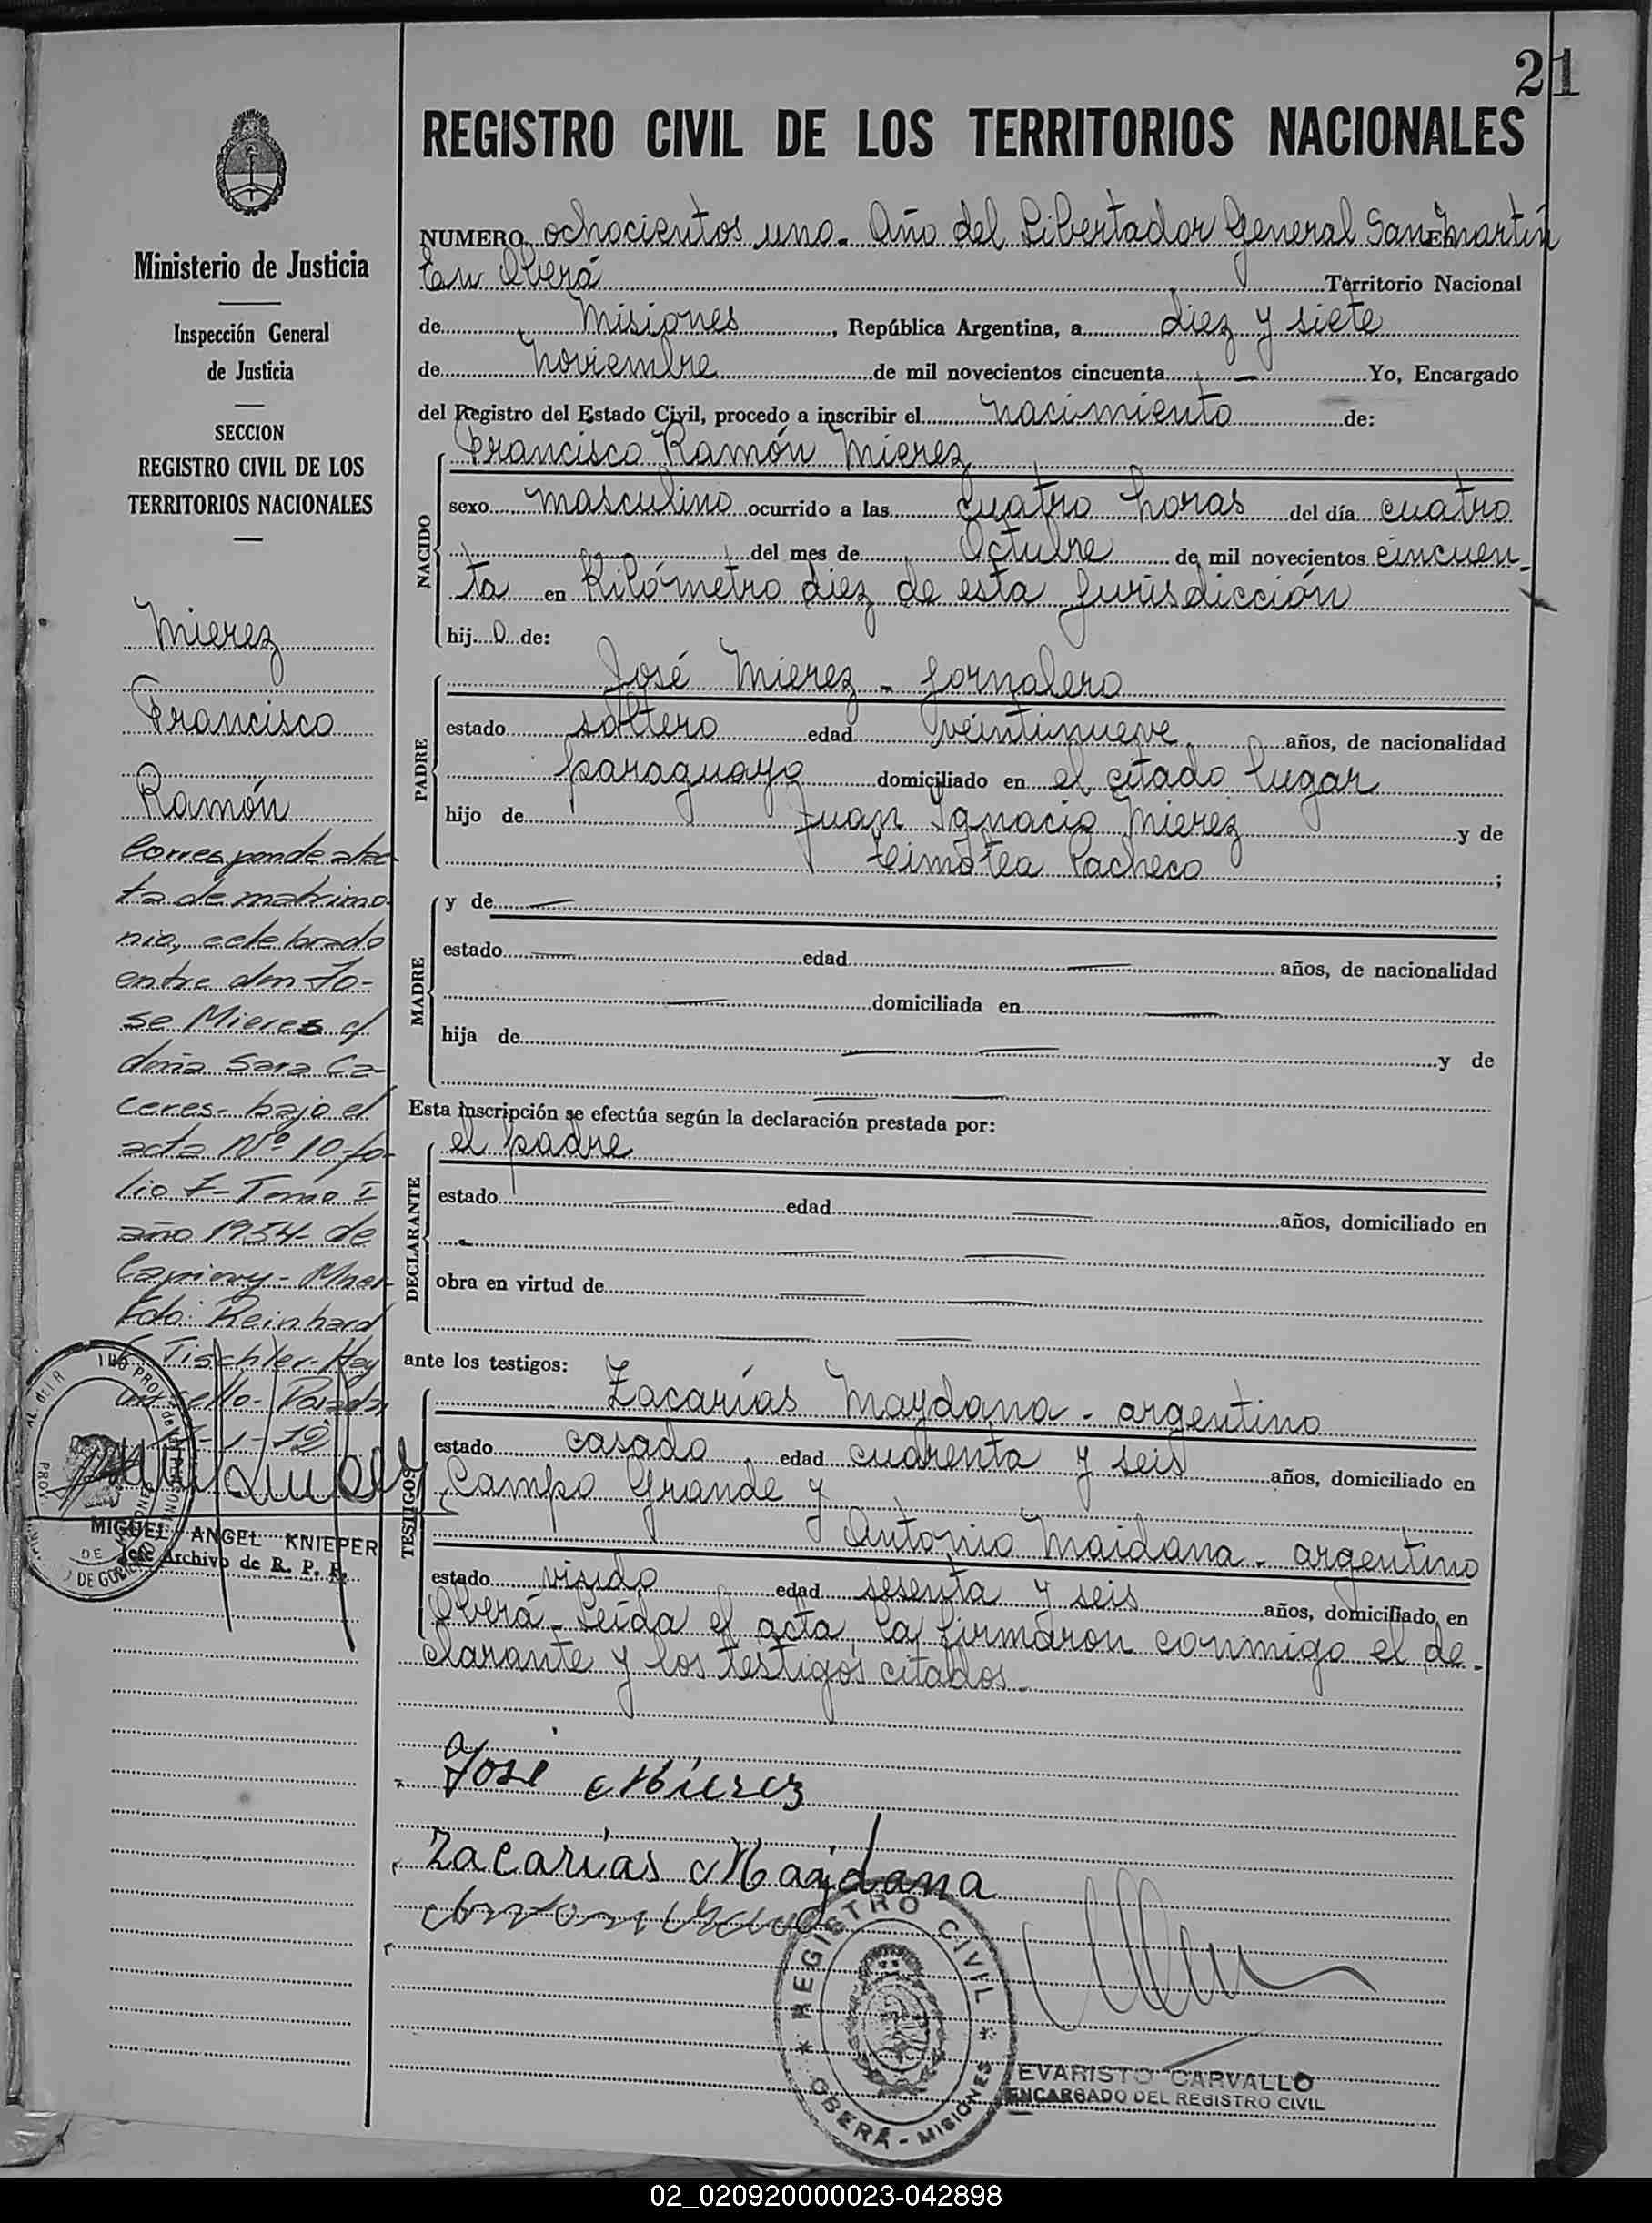 21
REGISTRO CIVIL DE LOS TERRITORIOS NACIONALES
Ministerio de Justicia
Inspección General
de Justicia
SECCION
REGISTRO CIVIL DE LOS
TERRITORIOS NACIONALES
Mierez
Francisco
Ramón
Corresponde al ac-
ta de matrimo-
nio, celebrado
entre don Jo-
se Mieres y
doña Sara Ca-
ceres- bajo el
acta Nº 10-fo-
lio I- Tomo I
año 1954- de
Capiovy-
Fdo: Reinhard
Tischler- Hay
un sello- Posadas
MIGUEL ANGEL KNIEPER
Jefe Archivo de R. P. P.
NUMERO ochocientos uno. Año del Libertador General San Martín
En Oberá Territorio Nacional
de Misiones, República Argentina, a diez y siete
de Noviembre de mil novecientos cincuenta - Yo, Encargado
del Registro del Estado Civil, procedo a inscribir el nacimiento de:
NACIDO
Francisco Ramón Mierez
sexo masculino ocurrido a las cuatro horas del día cuatro
del mes de Octubre de mil novecientos cincuen-
ta en Kilómetro diez de esta jurisdicción
hij o de:
PADRE
José Mierez - jornalero
estado soltero edad veintinueve años, de nacionalidad
paraguayo domiciliado en el citado lugar
hijo de Juan Ignacio Mierez y de
Teimotea Pacheco ;
MADRE
y de —
estado — edad — años, de nacionalidad
— domiciliada en —
hija de — — y de
— —
Esta inscripción se efectúa según la declaración prestada por:
DECLARANTE
el padre
estado — edad — años, domiciliado en
— —
obra en virtud de — —
— —
ante los testigos:
TESTIGOS
Zacarías Maydana - argentino
estado casado edad cuarenta y seis años, domiciliado en
Campo Grande y
Antonio Maidana - argentino
estado viudo edad sesenta y seis años, domiciliado en
Oberá - Leída el acta, la firmaron conmigo el de-
clarante y los testigos citados.-
José Mierez
Zacarias Maydana
REGISTRO CIVIL
* OBERÁ - MISIONES *
EVARISTO CARVALLO
ENCARGADO DEL REGISTRO CIVIL
02_020920000023-042898